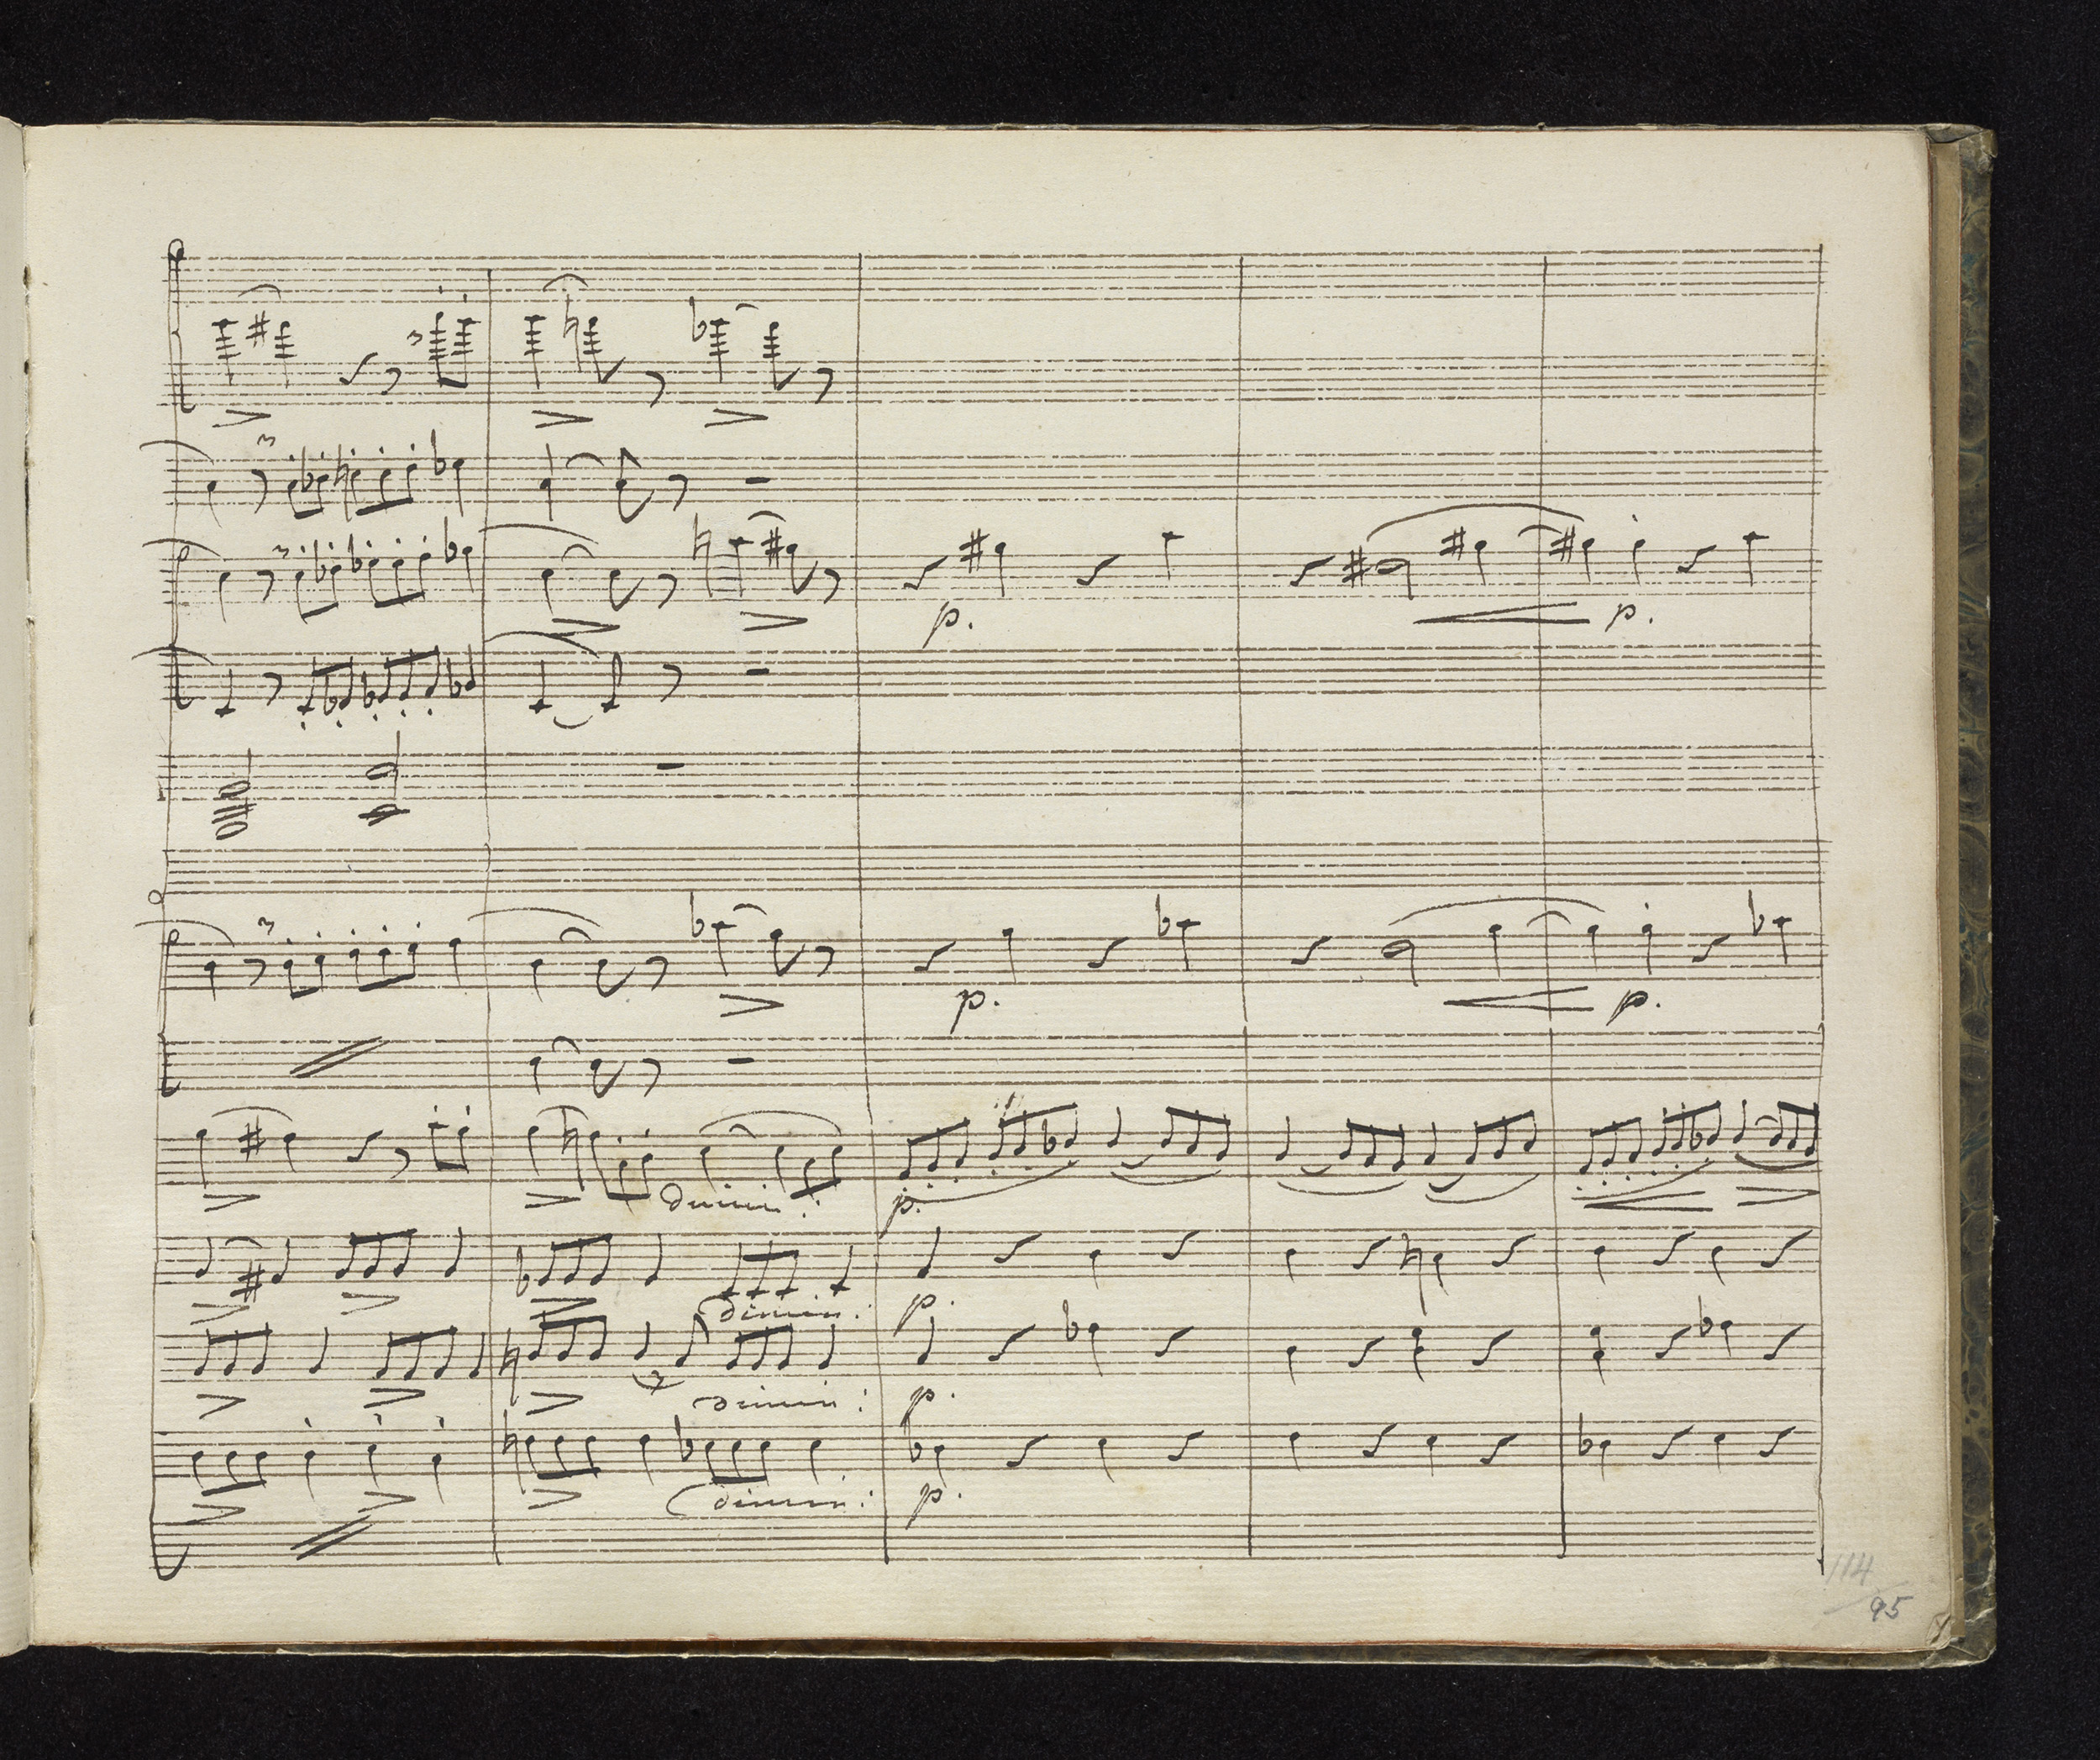 3
3
3
p. p.
3
p. p.
dimin: p.
dimin: p.
dimin: p.
dimin: p.
114
95